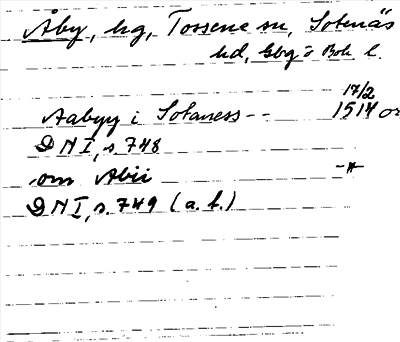 Åby, hg, Tossene sn, Sotenäs
hd, Gbg o Boh l.
Aabyy i Sotaness -- 17/2 1514 or
DN I, s. 748
om Abii -"-
DN I, s. 749 (a.f.)